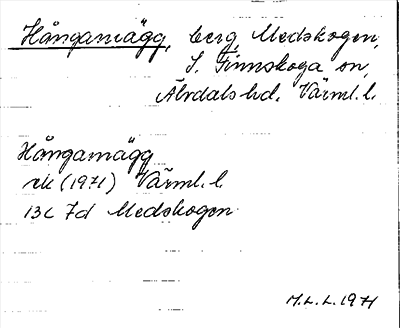 Hångamägg, berg, Medskogen,
S. Finnskoga sn,
Älvdals hd. Värml. l.
Hångamägg
rek (1971) Värml. l
13C 7d Medskogen
M.L.L. 1971